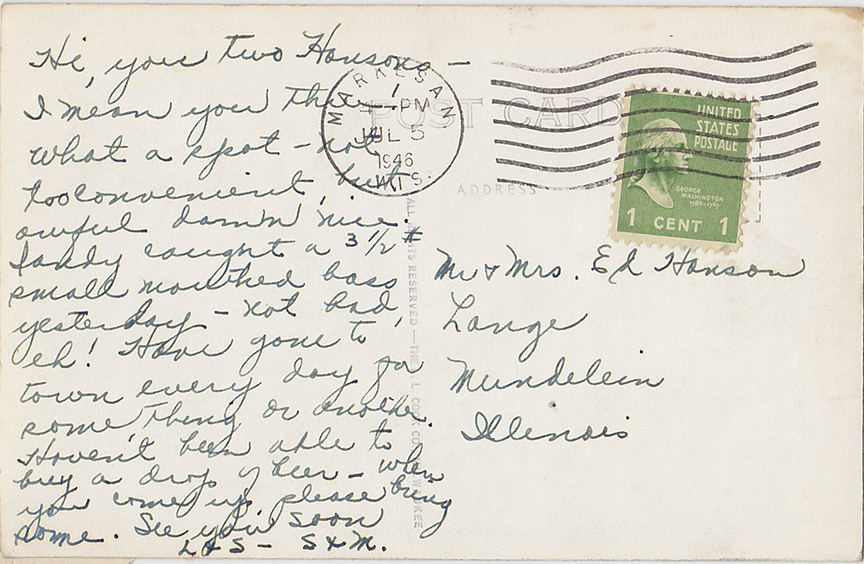 Hi, you two Hansons –
I mean you three –
What a spot – not
too convenient, but
awful damn nice.
Sandy caught a 3 1/2 #
small mouthed bass
yesterday – not bad,
eh! Have gone to
town every day for
some thing or another.
Haven't been able to
buy a drop of beer – when
you come up, please bring
some. See you soon
L & S – S & M.
MARKESAN
1 – PM
JUL 5
1946
WIS.
POST CARD
ADDRESS
UNITED
STATES
POSTAGE
GEORGE
WASHINGTON
1789-1797
1 CENT 1
Mr & Mrs. Ed Hanson
Lange
Mundelein
Illinois
ALL RIGHTS RESERVED — THE L. L. COOK CO. MILWAUKEE